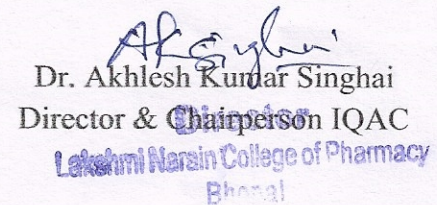 AKSinghai
Dr. Akhlesh Kumar Singhai
Director & Chairperson IQAC
Director
Lakshmi Narain College of Pharmacy
Bhopal